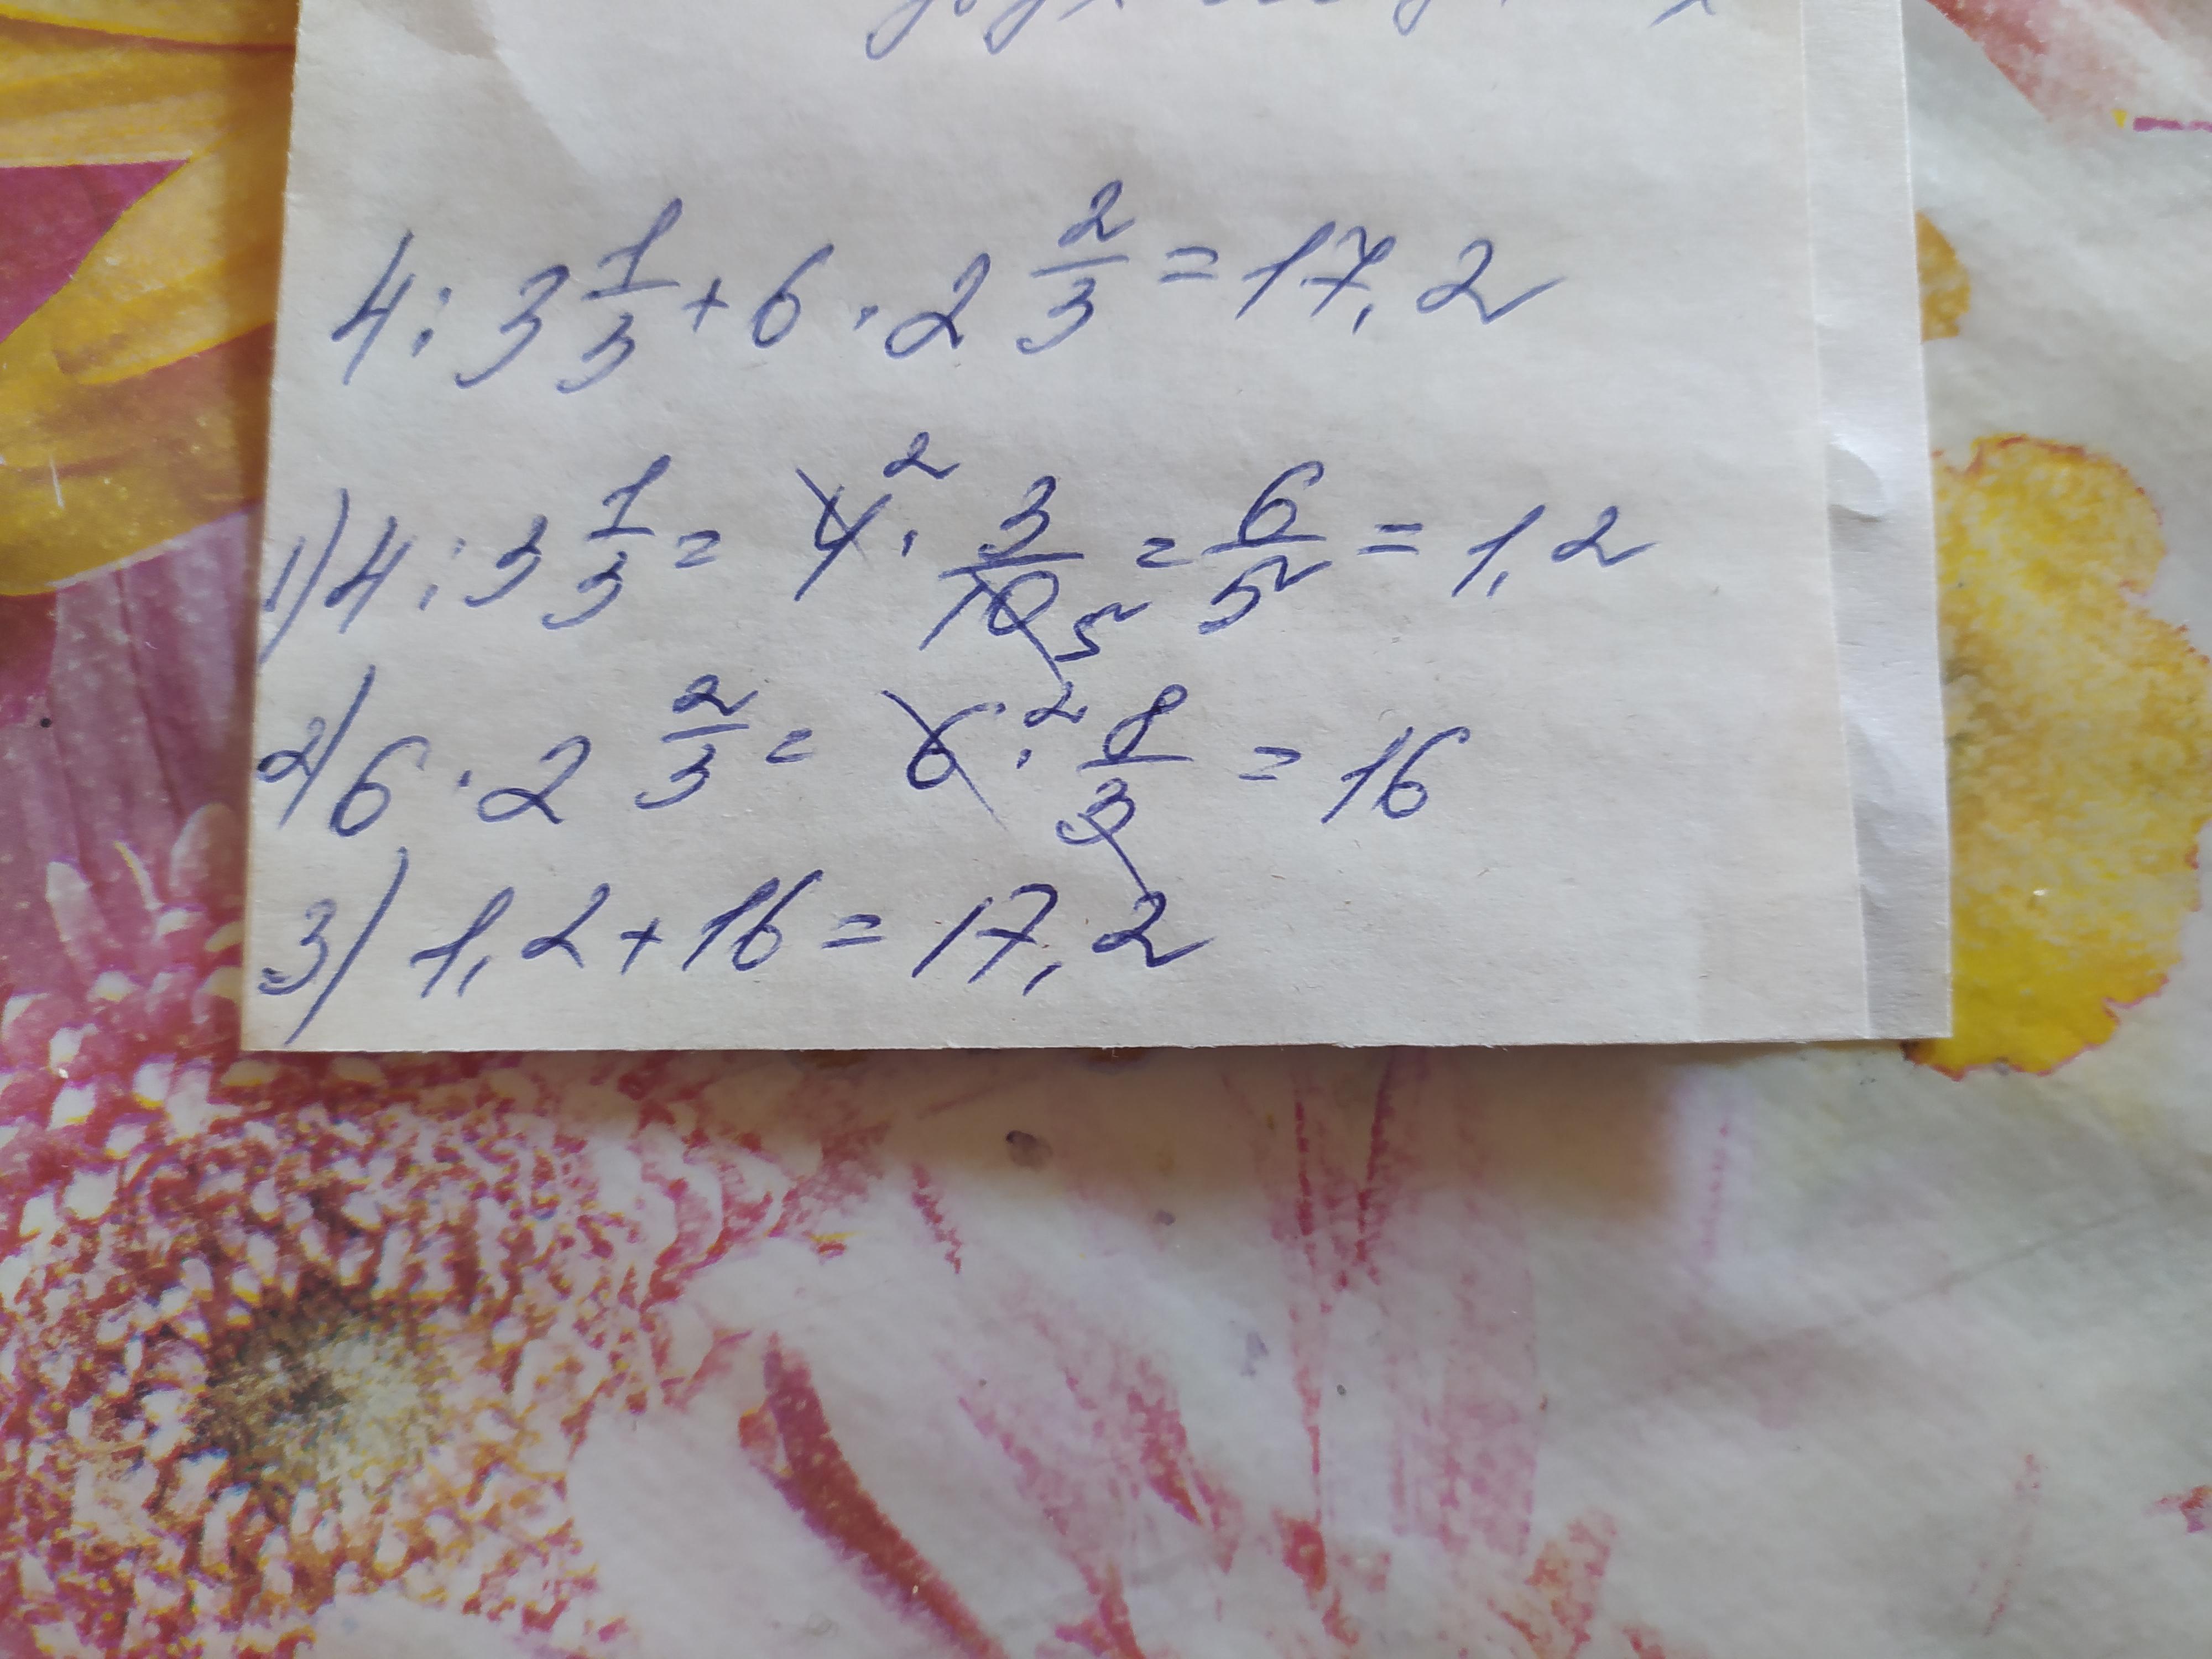 4 : 3 1/3 + 6 · 2 2/3 = 17,2
1) 4 : 3 1/3 = 4 2 · 3/10 5 = 6/5 = 1,2
2) 6 · 2 2/3 = 6 2 · 8/3 = 16
3) 1,2 + 16 = 17,2